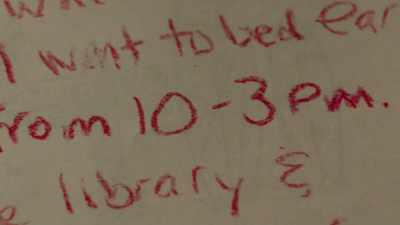 I went to bed ear
rom 10-3pm.
library &